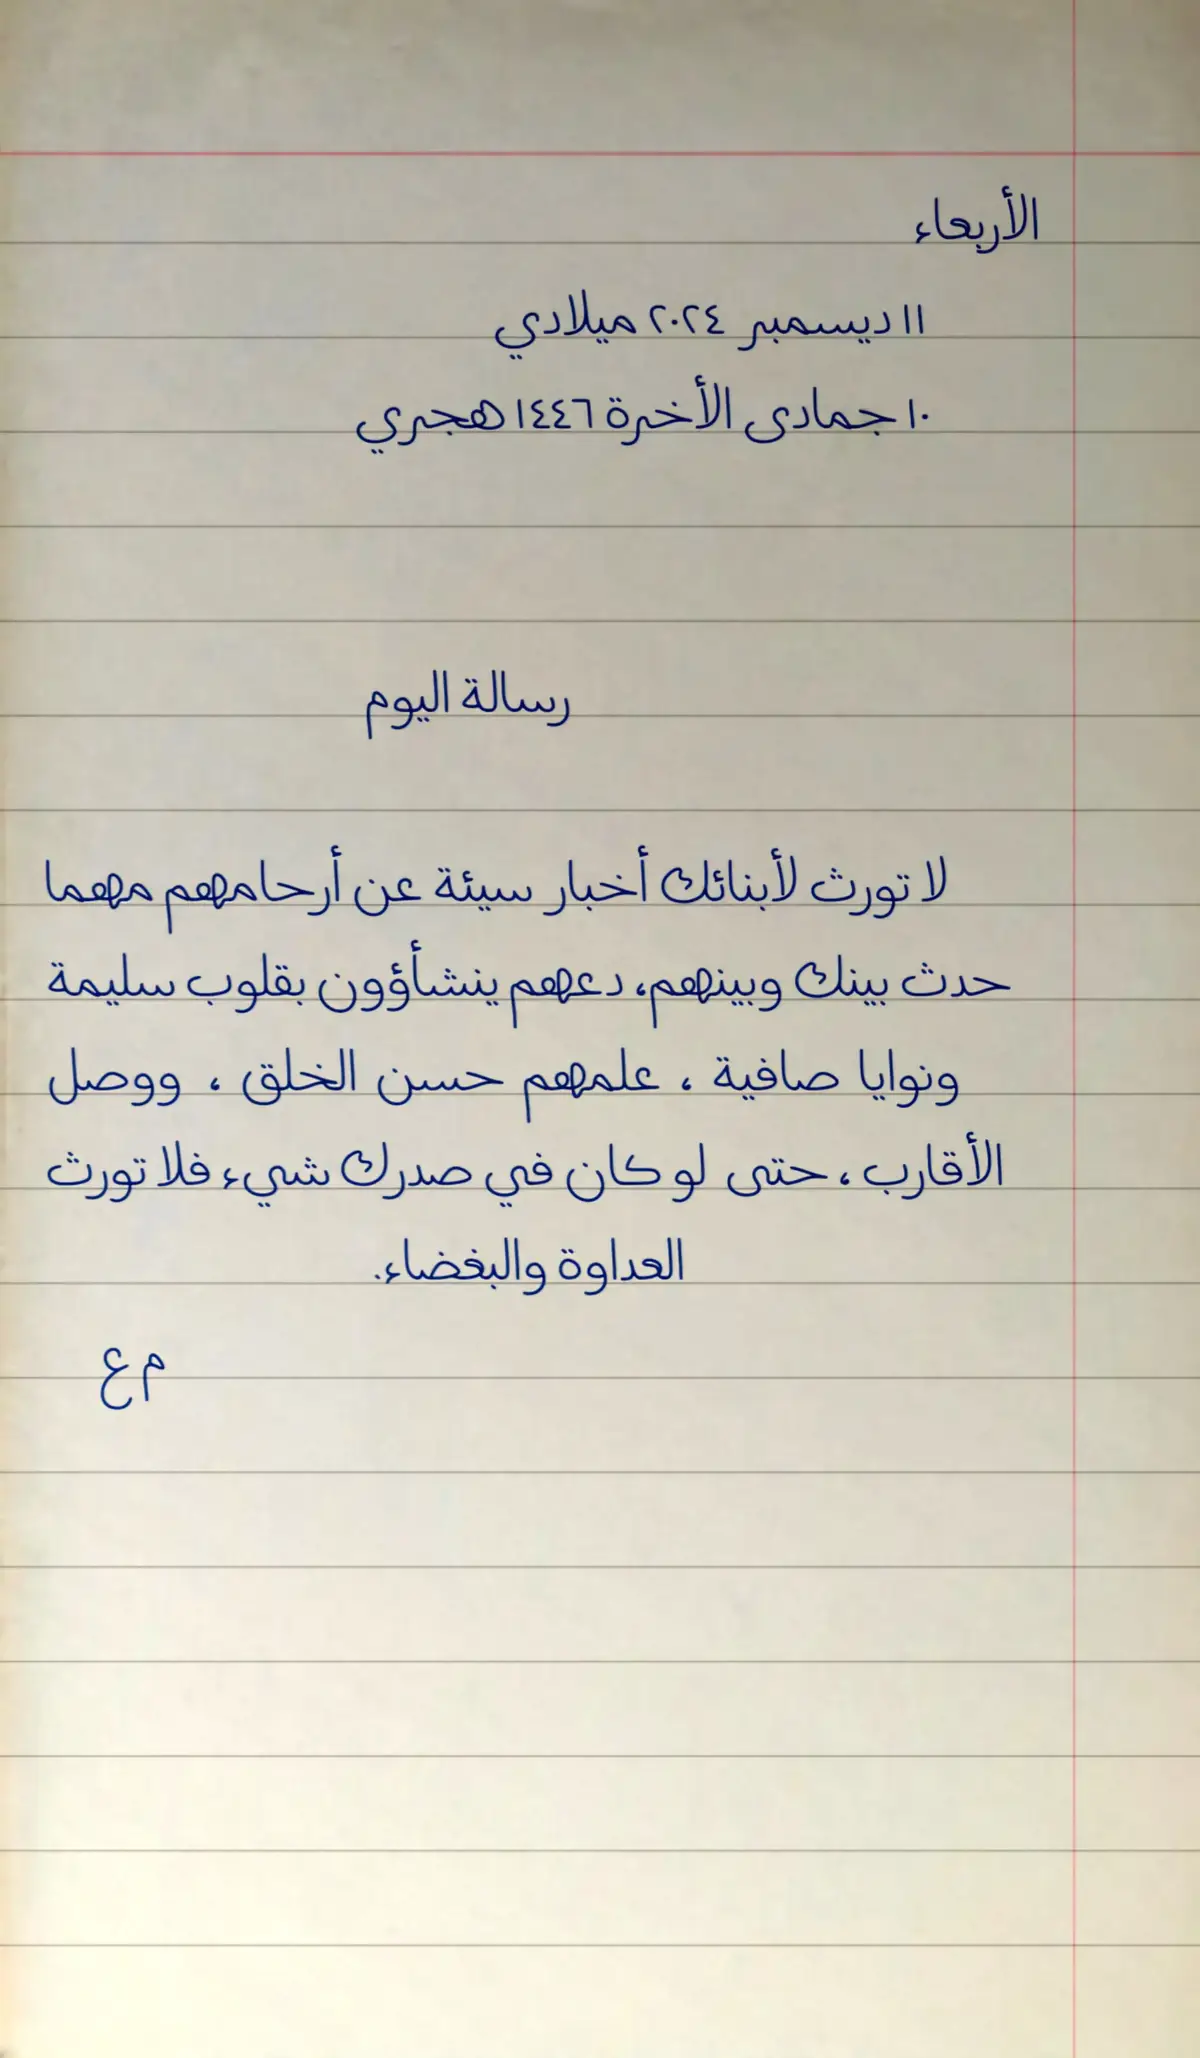 الأربعاء
١١ ديسمبر ٢٠٢٤ ميلادي
١٠ جمادى الأخرة ١٤٤٦ هجري
رسالة اليوم
لا تورث لأبنائك أخبار سيئة عن أرحامهم مهما
حدث بينك وبينهم، دعهم ينشأؤون بقلوب سليمة
ونوايا صافية ، علمهم حسن الخلق ، ووصل
الأقارب ، حتى لو كان في صدرك شيء فلا تورث
العداوة والبغضاء.
م ع